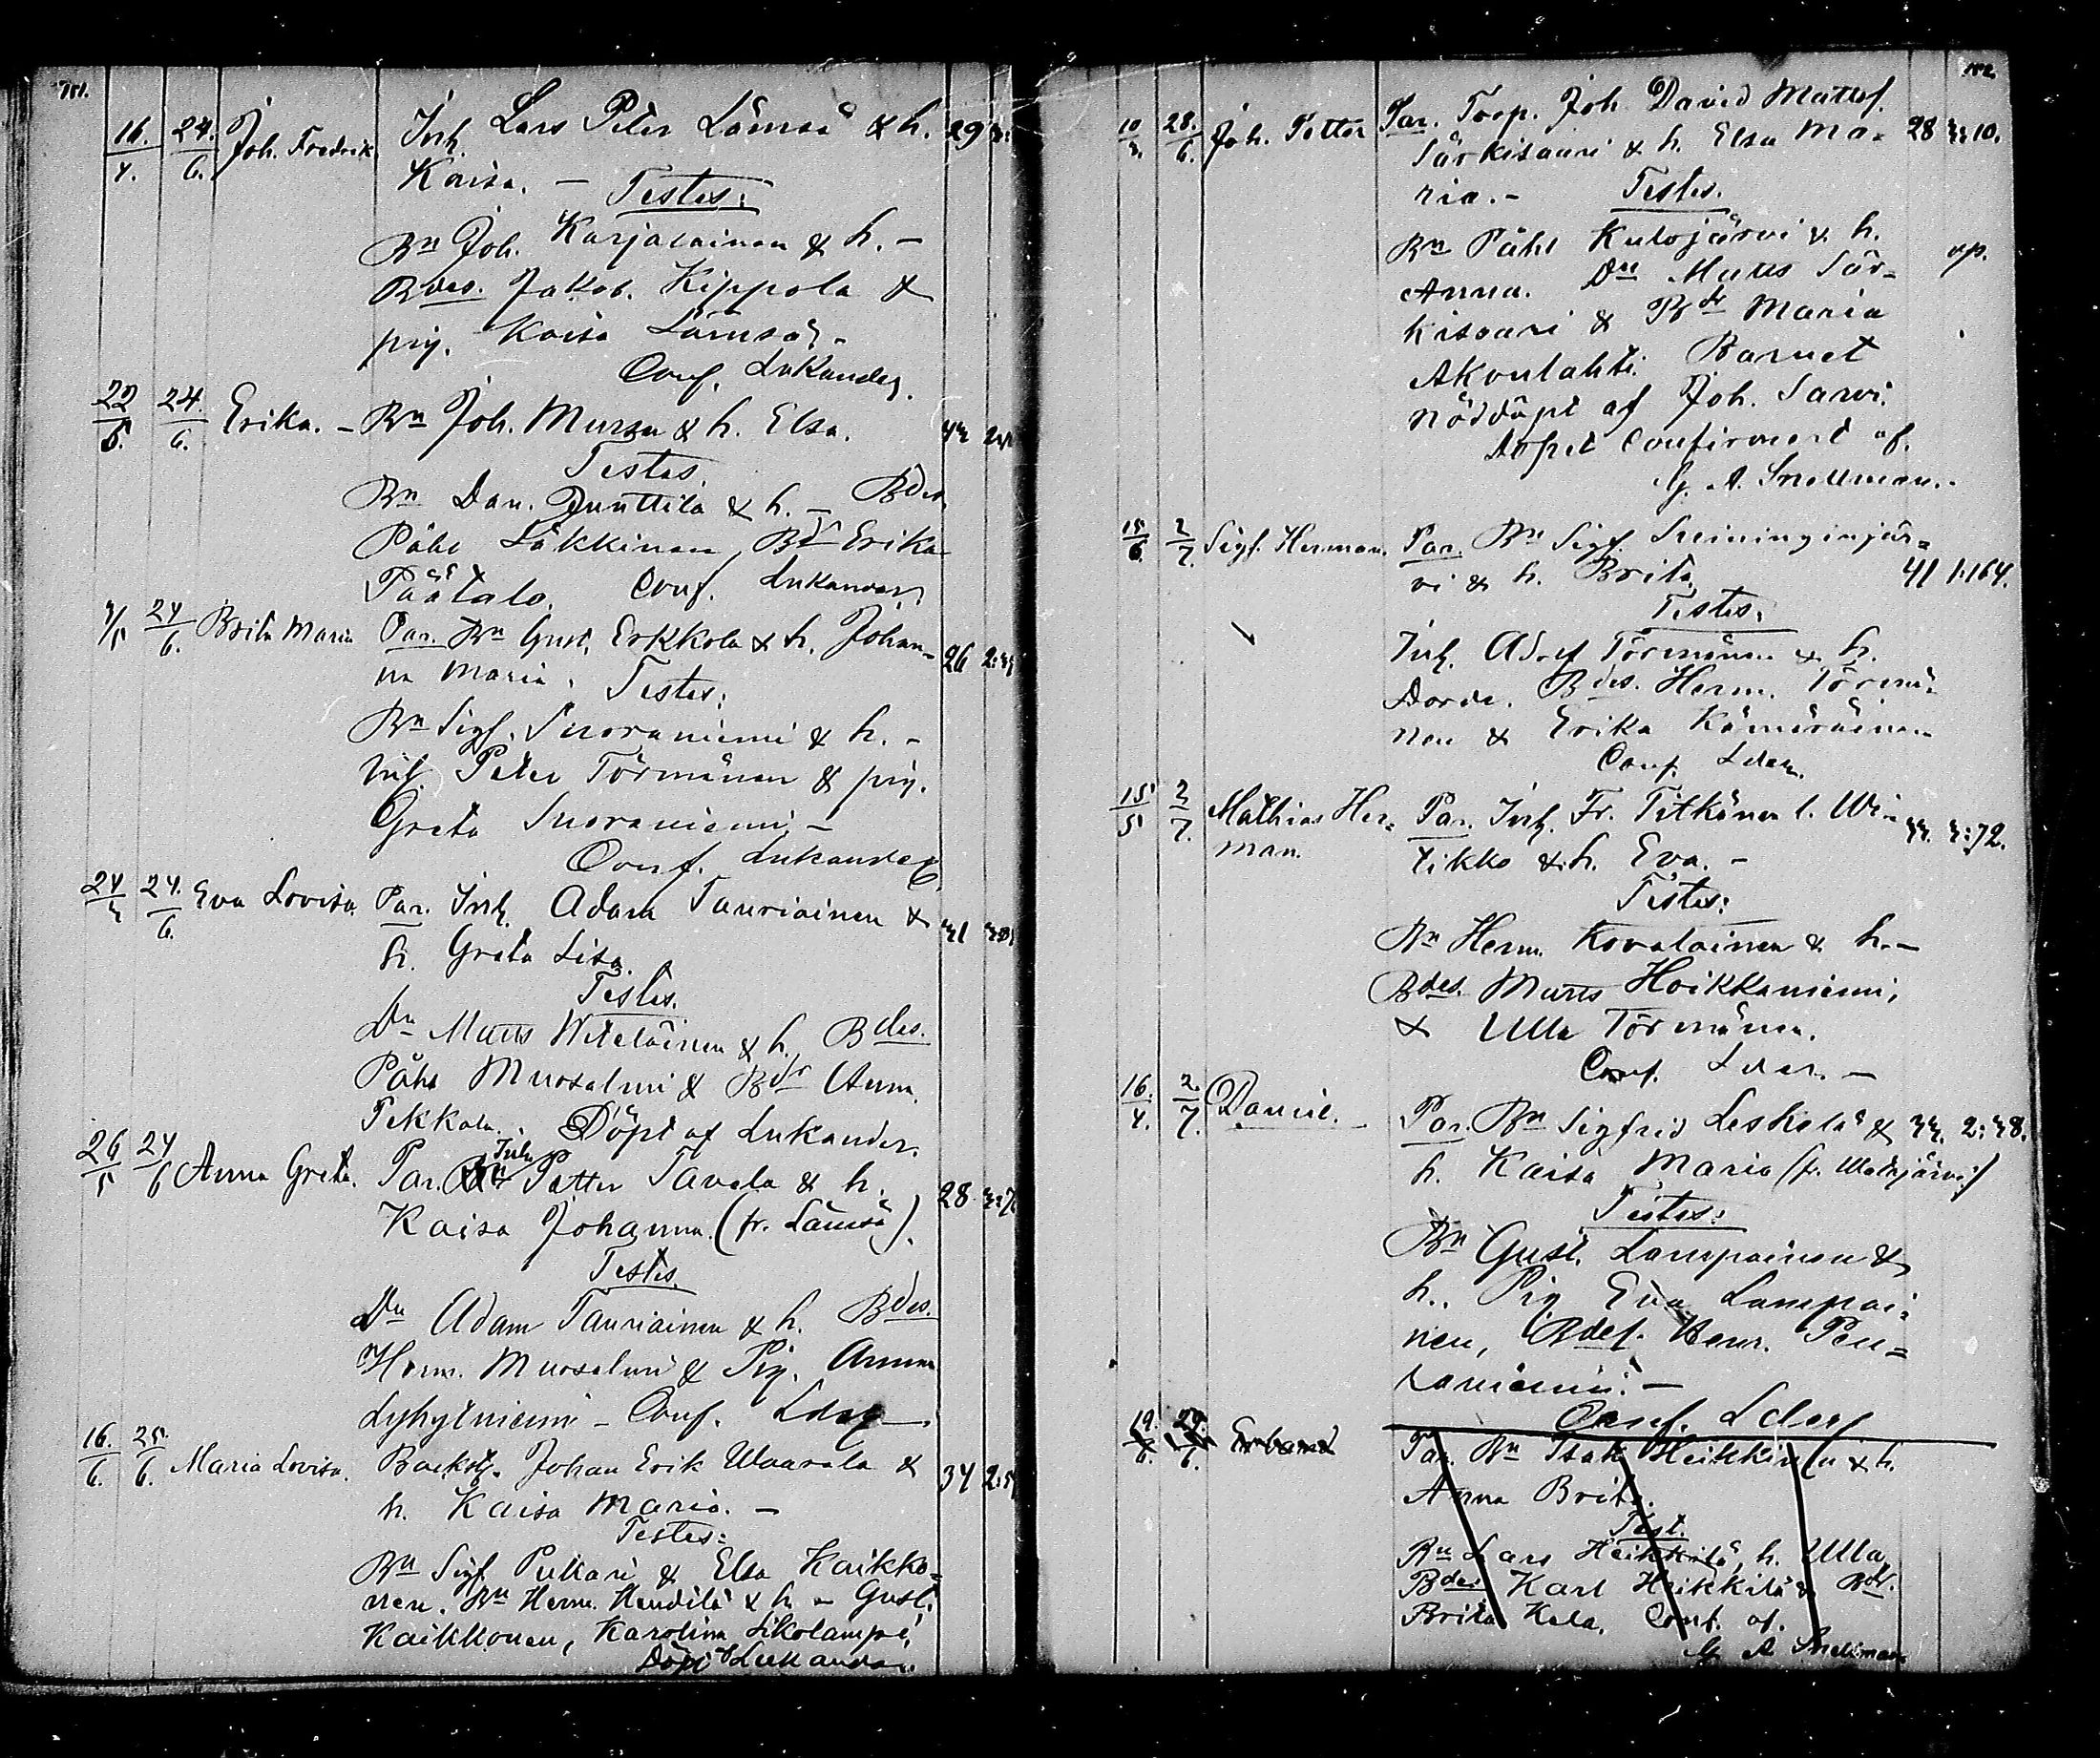 151.
16./4. 24./6. Joh. Fredrik Inh. Lars Peter Lämsä & h. 29
Kaisa. –
Testes:
Bn Joh. Karjalainen & h. –
Bdes. Jakob. Kippola &
pig. Kaisa Lämsä. –
Conf. Lukander.
22/5. 24./6. Erika. – Bn Joh. Mursu & h. Elsa.
Testes.
Bn Dan. Junttila & h. – Bdes.
Påhl Läkkinen, Bdr Erika
Päätalo. Conf. Lukander.
24/6. Brita Maria Par. Bn Gust. Erkkola & h. Johan-
na Maria. 26
Testes:
Bn Sigf. Suoraniemi & h. –
Inh. Peter Törmänen & pig.
Greta Suoraniemi, –
Conf. Lukander
24. 24./6. Eva Lovisa. Par. Inh. Adam Tauriainen &
h. Greta Lisa.
Testes.
Dn Matts Witeläinen & h, Bdes.
Påhl Mursalmi & Bdr Anna
Pekkala. Döpt af Lukander.
26/5 24/6 Anna Greta. Par. Inh. Petter Tavela & h. 28
Kaisa Johanna. (fr. Lämsä).
Testes.
Dn Adam Tauriainen & h. Bdes.
Herm. Mursalmi & Pig. Anna
Lyhytniemi – Conf. Ldeг –
16./6. 25./6. Maria Lovisa. Backstg. Johan Erik Waarala & 34
h. Kaisa Maria. –
Testes:
Bn Sigf. Pukari & Elsa Kaikko-
nen. Bn Herm. Hendilä & h – Gust.
Kaikkonen, Karolina Sikolampi,
Döpt Lukander.
152.
10 28./6. Joh. Petter Par. Torp. Joh. David Mattsf. 28 10.
Särkisaari & h. Elsa Ma-
ria. –
Testes.
Bn Påhl Kulojärvi & h.
Anna. Dn Matts Sär-
kisaari & Bdr Maria
Akonlahti. Barnet
nöddöpt af Joh. Sarvi.
Dopet Confirmerd af.
G. A. Snellman. –
15/6. 2/7. Sigf. Herman. Par. Bn Sigf. Seininginjär-
vi & h. Brita. 41 1:164.
Testes:
Inh. Adolf Törmänen & h.
Dorde. Bdes. Herm. Törmä-
nen & Erika Kämäräinen
Conf. Lder.
15/5 2/7. Mathias Her- Par. Inh. Fr. Pitkänen l. Wi- :72.
man. tikko & h. Eva. –
Testes:
Bn Herm. Kovalainen & h. –
Bdes. Matts Hoikkaniemi,
& Ulla Törmänen.
Conf. Lder. –
16./4. 2./7. Daniel. – Par. Bn Sigfrid Leskelä &
h. Kaisa Maria
Testes:
Bn Gust. Lampainen &
h., Pig Eva Lampai-
nen, Bdes. Henr. Pen-
taniemi. –
Conf. Lder
19./6. 29./6. Par. Bn Isak Heikkinen & h.
Anna Brita.
Test.
Bn Lars Heikkilä, h. Ulla,
Bdes Karl Heikkilä & Bdr.
Brita Kela. Conf. af.
G A Snellman